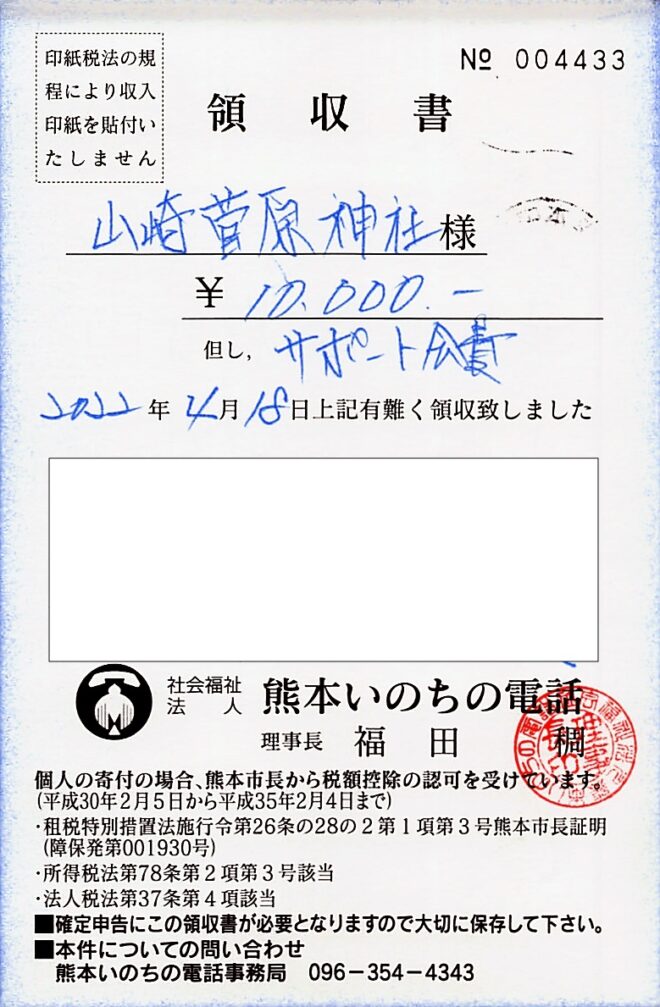 印紙税法の規
程により収入
印紙を貼付い
たしません
№ 004433
領収書
山崎菅原神社様
¥ 10.000.-
但し, サポート会費
2022年4月18日上記有難く領収致しました
社会福祉
法人
熊本いのちの電話
理事長 福田 稠
個人の寄付の場合、熊本市長から税額控除の認可を受けています。
(平成30年2月5日から平成35年2月4日まで)
・租税特別措置法施行令第26条の28の2第1項第3号熊本市長証明
(障保発第001930号)
・所得税法第78条第2項第3号該当
・法人税法第37条第4項該当
■確定申告にこの領収書が必要となりますので大切に保存して下さい。
■本件についての問い合わせ
熊本いのちの電話事務局 096-354-4343